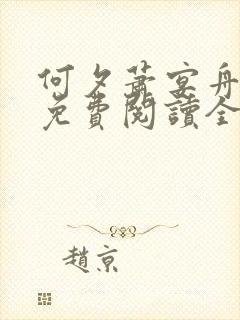 何夕蕭宴舟
免費閱讀全
趙京